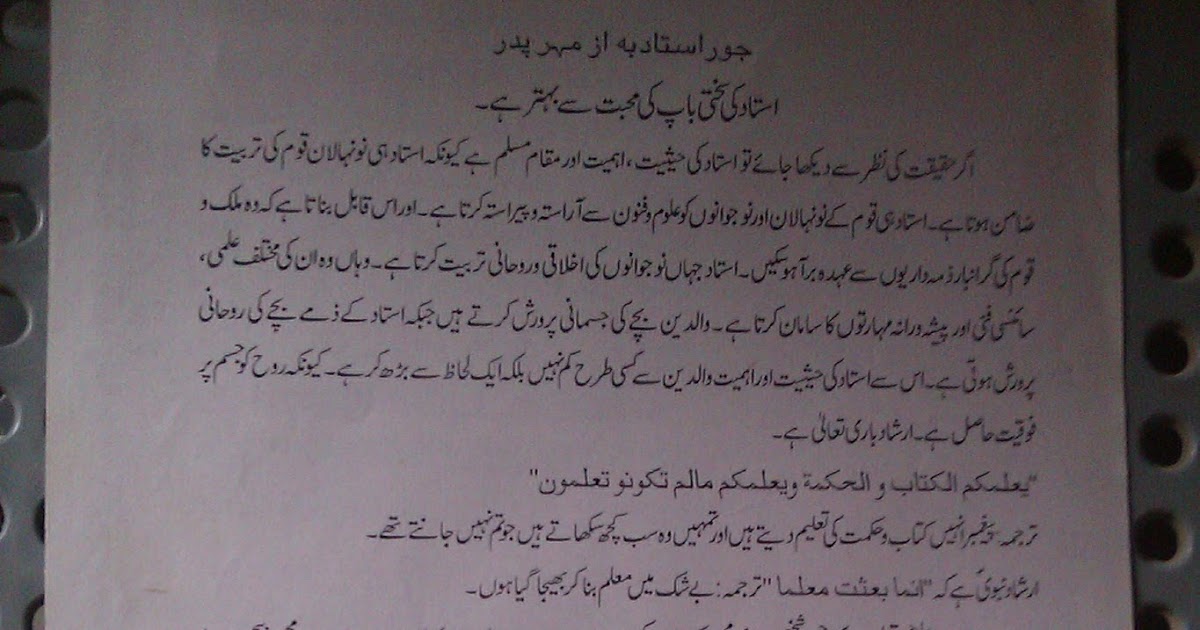 جور استاد به از مہر پدر
استاد کی سختی باپ کی محبت سے بہتر ہے۔
اگر حقیقت کی نظر سے دیکھا جائے تو استاد کی حیثیت ، اہمیت اور مقام مسلم ہے کیونکہ استاد ہی نونہالان قوم کی تربیت کا
ضامن ہوتا ہے۔ استاد ہی قوم کے نونہالان اور نوجوانوں کو علوم و فنون سے آراستہ و پیراستہ کرتا ہے۔ اور اس قابل بناتا ہے کہ وہ ملک و
قوم کی گرانبار ذمہ داریوں سے عہدہ برآ ہو سکیں۔ استاد جہاں نوجوانوں کی اخلاقی و روحانی تربیت کرتا ہے۔ وہاں وہ ان کی مختلف علمی ،
سائنسی فنی اور پیشہ ورانہ مہارتوں کا سامان کرتا ہے۔ والدین بچے کی جسمانی پرورش کرتے ہیں جبکہ استاد کے ذمے بچے کی روحانی
پرورش ہوتی ہے۔ اس سے استاد کی حیثیت اور اہمیت والدین سے کسی طرح کم نہیں بلکہ ایک لحاظ سے بڑھ کر ہے۔ کیونکہ روح کو جسم پر
فوقیت حاصل ہے۔ ارشاد باری تعالیٰ ہے۔
"یعلمکم الکتاب و الحکمة ویعلمکم مالم تکونو تعلمون"
ترجمہ: پیغمبر انہیں کتاب و حکمت کی تعلیم دیتے ہیں اور تمہیں وہ سب کچھ سکھاتے ہیں جو تم نہیں جانتے تھے۔
ارشاد نبویؐ ہے کہ "انما بعثت معلما" ترجمہ: بے شک میں معلم بنا کر بھیجا گیا ہوں۔